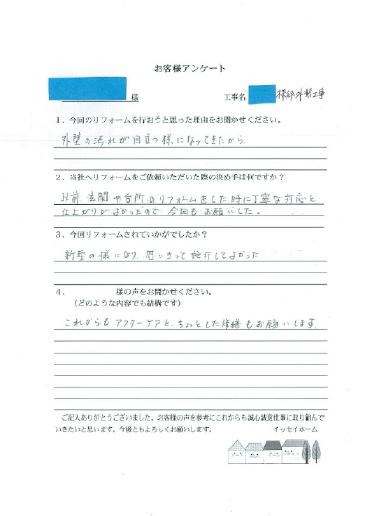 お客様アンケート
様 工事名 様邸外装工事
1、今回のリフォームを行おうと思った理由をお聞かせください。
外壁の汚れが目立つ様になってきたから
2、当社へリフォームをご依頼いただいた際の決め手は何ですか？
以前 玄関や台所のリフォームをした時に丁寧な対応と
仕上がりがよかったので 今回もお願いした。
3、今回リフォームされていかがでしたか？
新築の様になり 思いきって してよかった
4、 様の声をお聞かせください。
（どのような内容でも結構です）
これからもアフターケアと、ちょっとした修繕もお願いします。
ご記入ありがとうございました。お客様の声を参考にこれからも誠心誠意仕事に取り組んで
いきたいと思います。今後ともよろしくお願いします。 イッセイホーム